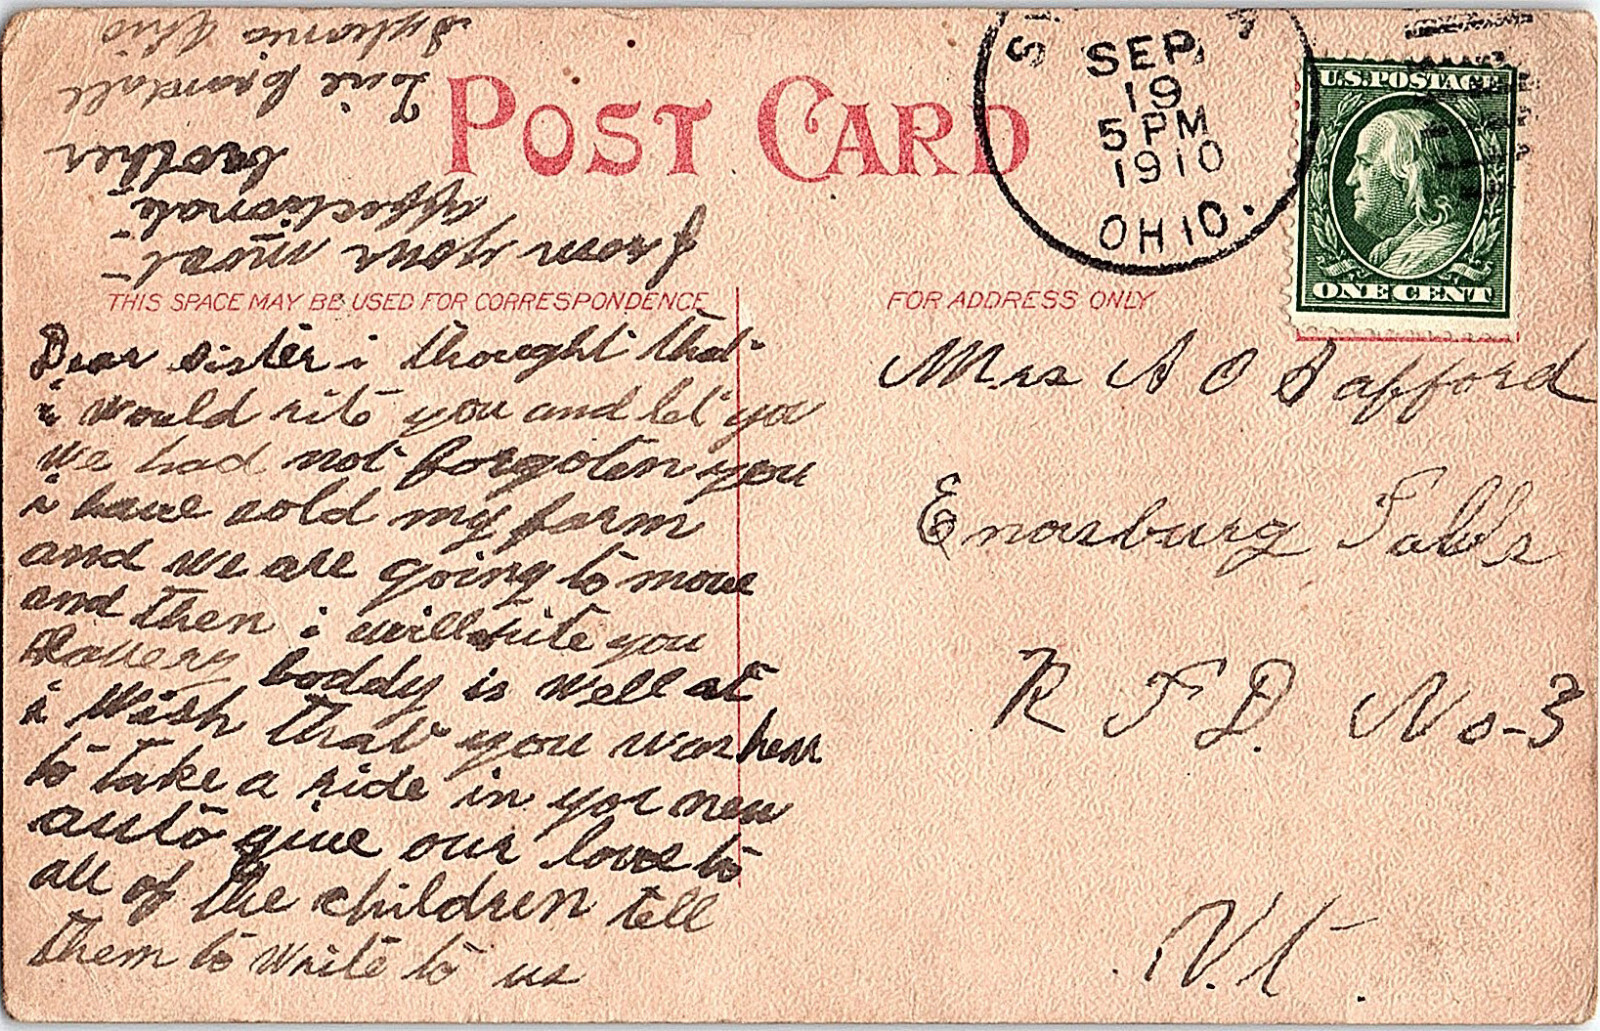 POST CARD
SEP.
19
5 PM
1910
OHIO.
U.S. POSTAGE
ONE CENT
THIS SPACE MAY BE USED FOR CORRESPONDENCE
FOR ADDRESS ONLY
Dear sister i thought that
i would rite you and let you
we had not forgoten you
i have sold my farm
and we are going to move
and then i will rite you
boddy is well at
i wish that you was hear
to take a ride in your new
auto give our love to
all of the children tell
them to write to us
from your most
affectionate
brother
Crandall
Sylvania Ohio
Mrs A O Safford
Enosburg Falls
R F D. No-3
Vt.